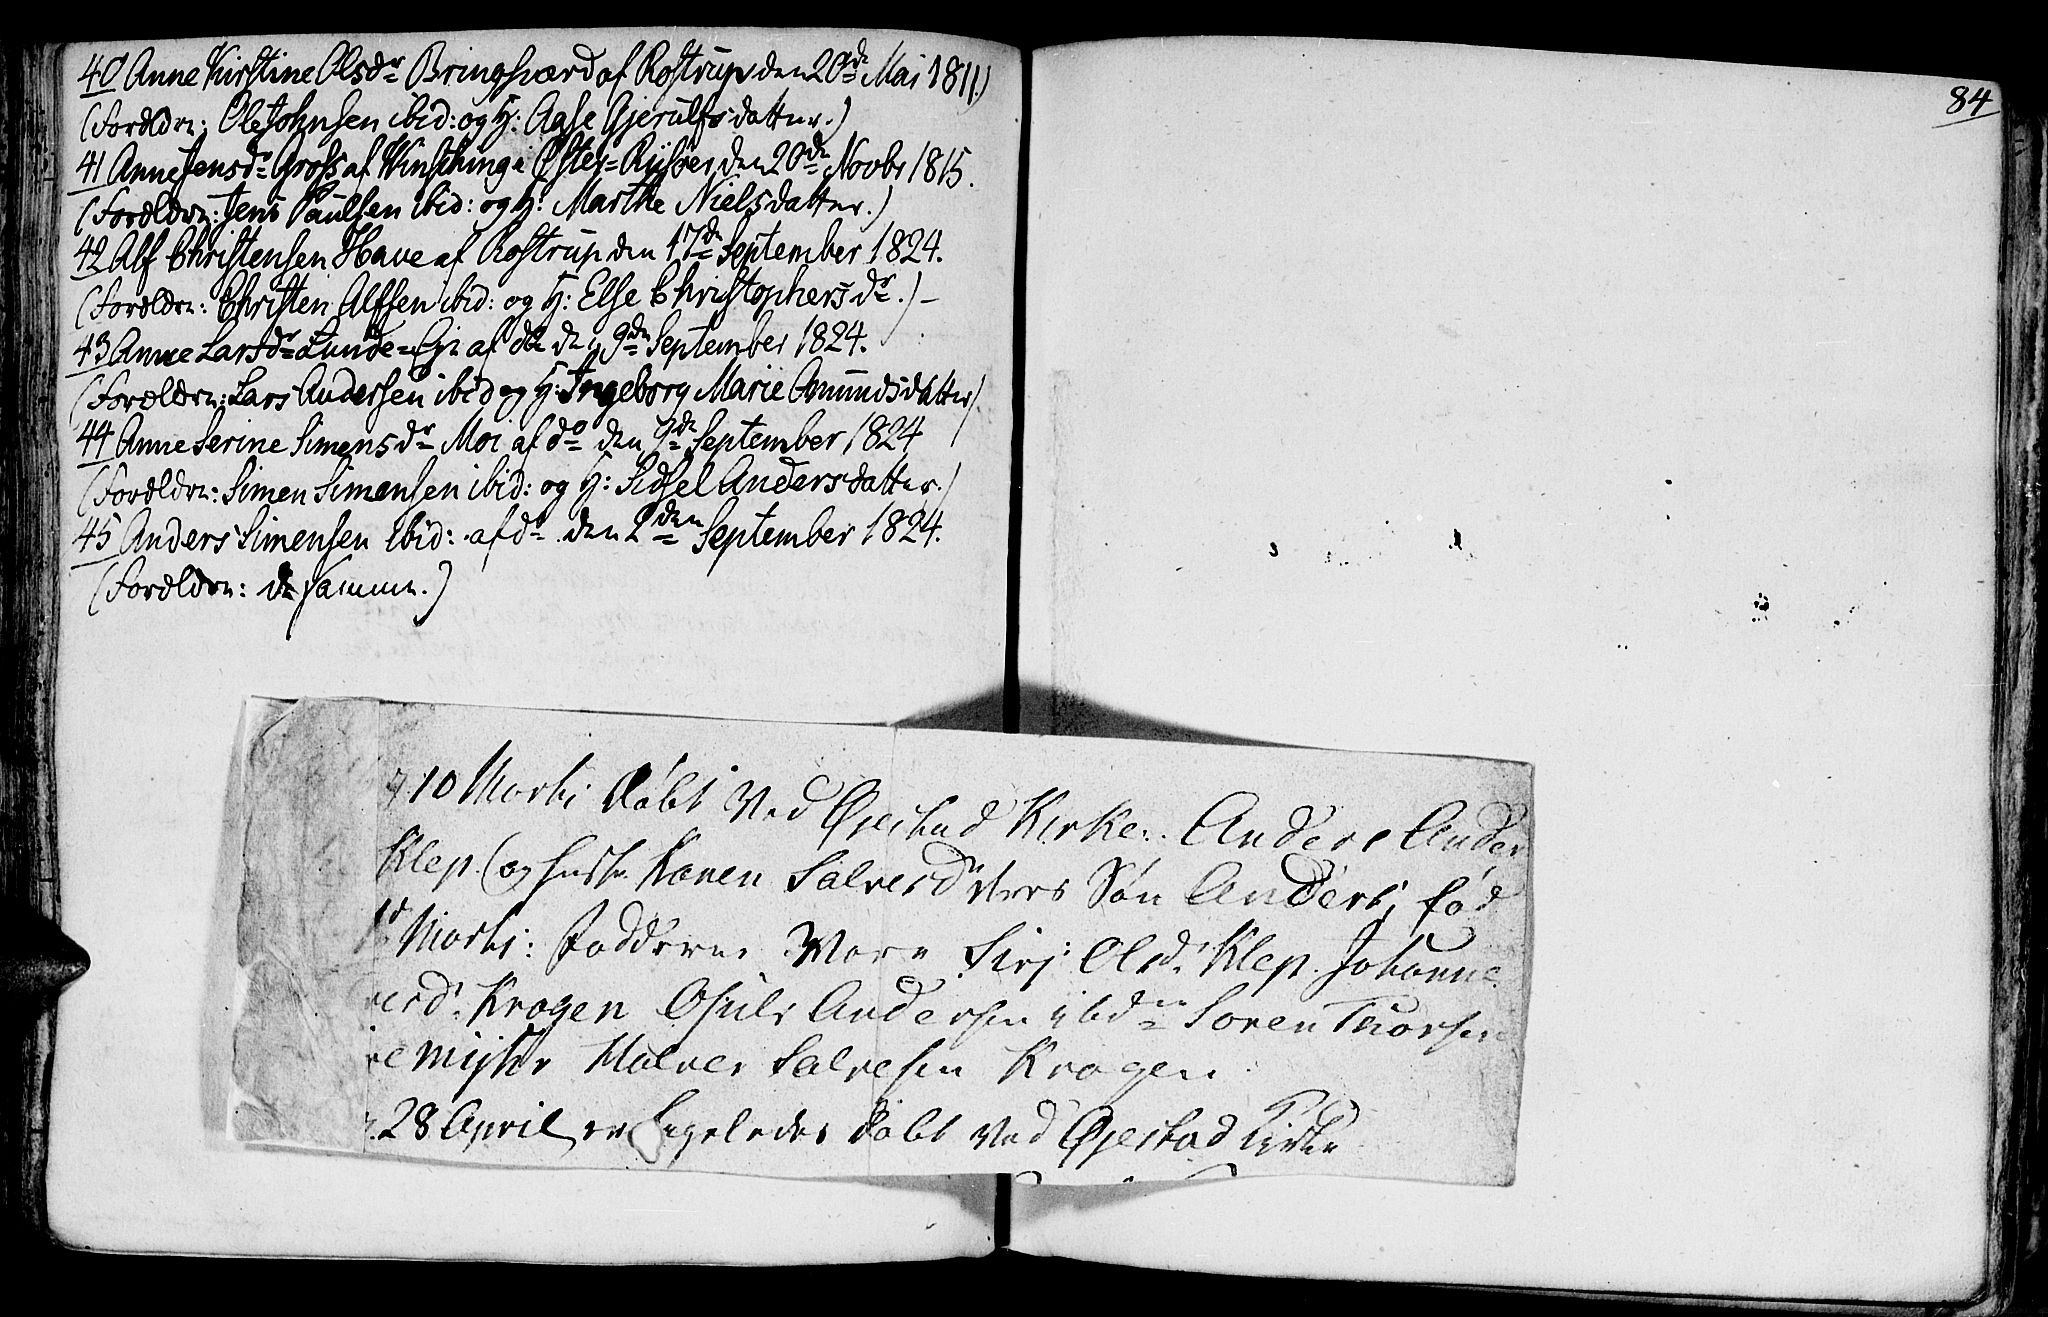 40 Anne Kirstine Olsdr Bringsværd af Rostrup den 20de Mai 1811.)
(Forældre: Ole Johnsen ibid: og H: Aase Gjerulfsdatter.)
41 Anne Jensdr Gross af Øster-Riisøer den 20de Novbr 1815.
(Forældre: Jens Paulsen ibid: og H: Marthe Nielsdatter.)
42 Alf Christensen Have af Rostrup den 17de September 1824.
(Forældre: Christen Alfsen ibid: og H: Else Christophersdr.)-
43 Anne Larsdr Lunde- af do den 9de September 1824.
(Forældre: Lars Andersen ibid og H: Ingeborg Marie Omundsdatter)
44 Anne Serine Simensdr Moi af do den 7de September 1824
(Forældre: Simen Simensen ibid: og H: Sidsel Andersdatter.)
45 Anders Simensen ibid: af do den 2den September 1824.
(Forældre: de samme.)
84
10 Marti døbt Ved Øjestad Kirke: Anders Ander
Klep. (og Karen Salvesd Søn Anders, fød
Marti: Fadderne Vare Sirj Olsd. Klep. Johanne
Kragen Osuls Andersen ibd Soren Thorsen
Halvor Salvesen Kragen
28 April er døbt Ved Øjestad Kirke